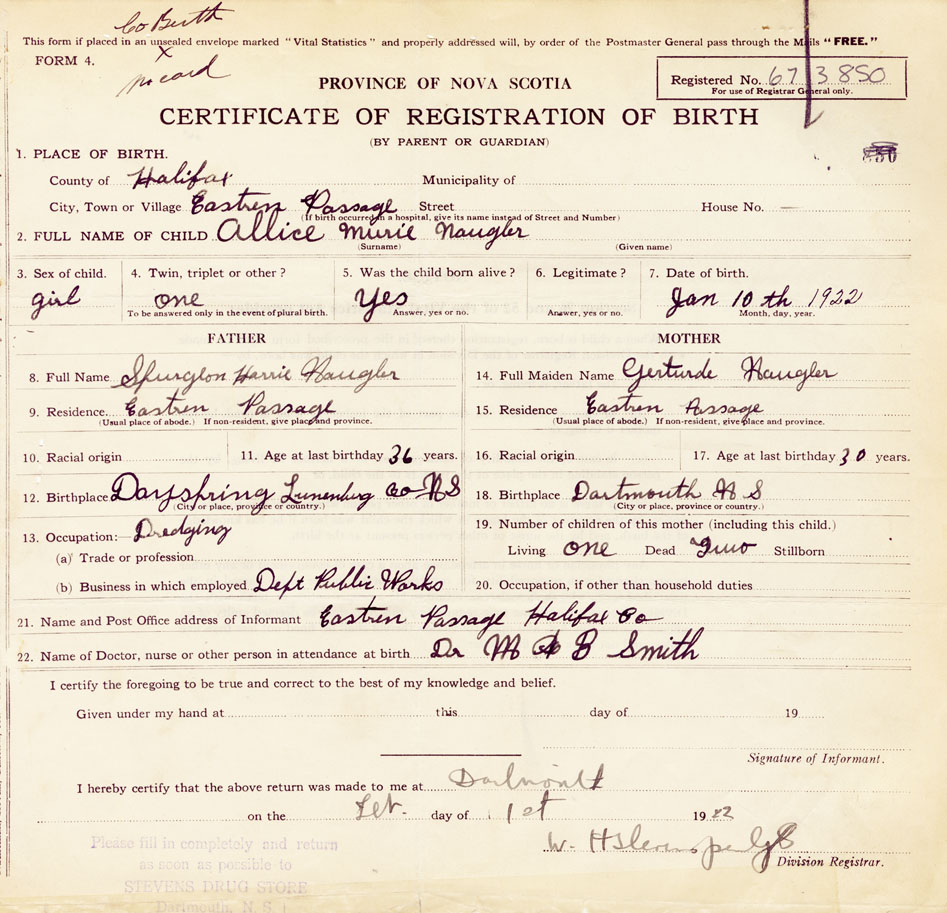 Co Birth
This form if placed in an unsealed envelope marked "Vital Statistics" and properly addressed will, by order of the Postmaster General pass through the Mails "FREE."
FORM 4.
x
no card
PROVINCE OF NOVA SCOTIA
Registered No. 67 3850
For use of Registrar General only.
CERTIFICATE OF REGISTRATION OF BIRTH
(BY PARENT OR GUARDIAN)
1. PLACE OF BIRTH.
County of Halifax Municipality of
City, Town or Village Eastren Passage Street House No. —
(If birth occurred in a hospital, give its name instead of Street and Number)
2. FULL NAME OF CHILD Allice Murie Naugler
(Surname) (Given name)
3. Sex of child. 4. Twin, triplet or other? 5. Was the child born alive? 6. Legitimate? 7. Date of birth.
girl one Yes Jan 10 th 1922
To be answered only in the event of plural birth. Answer, yes or no. Answer, yes or no. Month, day, year.
FATHER MOTHER
8. Full Name Spurgeon Harrie Naugler 14. Full Maiden Name Gerturde Naugler
9. Residence Eastren Passage 15. Residence Eastren Passage
(Usual place of abode.) If non-resident, give place and province. (Usual place of abode.) If non-resident, give place and province.
10. Racial origin 11. Age at last birthday 36 years. 16. Racial origin 17. Age at last birthday 30 years.
12. Birthplace Dayspring Lunenburg Co N S 18. Birthplace Dartmouth N S
(City or place, province or country.) (City or place, province or country.)
13. Occupation:— Dredging 19. Number of children of this mother (including this child.)
(a) Trade or profession Living one Dead Two Stillborn
(b) Business in which employed Dept Public Works 20. Occupation, if other than household duties
21. Name and Post Office address of Informant Eastren Passage Halifax Co
22. Name of Doctor, nurse or other person in attendance at birth Dr M A B Smith
I certify the foregoing to be true and correct to the best of my knowledge and belief.
Given under my hand at this day of 19
Signature of Informant.
I hereby certify that the above return was made to me at Dartmouth
on the Feb. day of 1st 1922
W. H Stevens per
Division Registrar.
Please fill in completely and return
as soon as possible to
STEVENS DRUG STORE
Dartmouth, N. S.